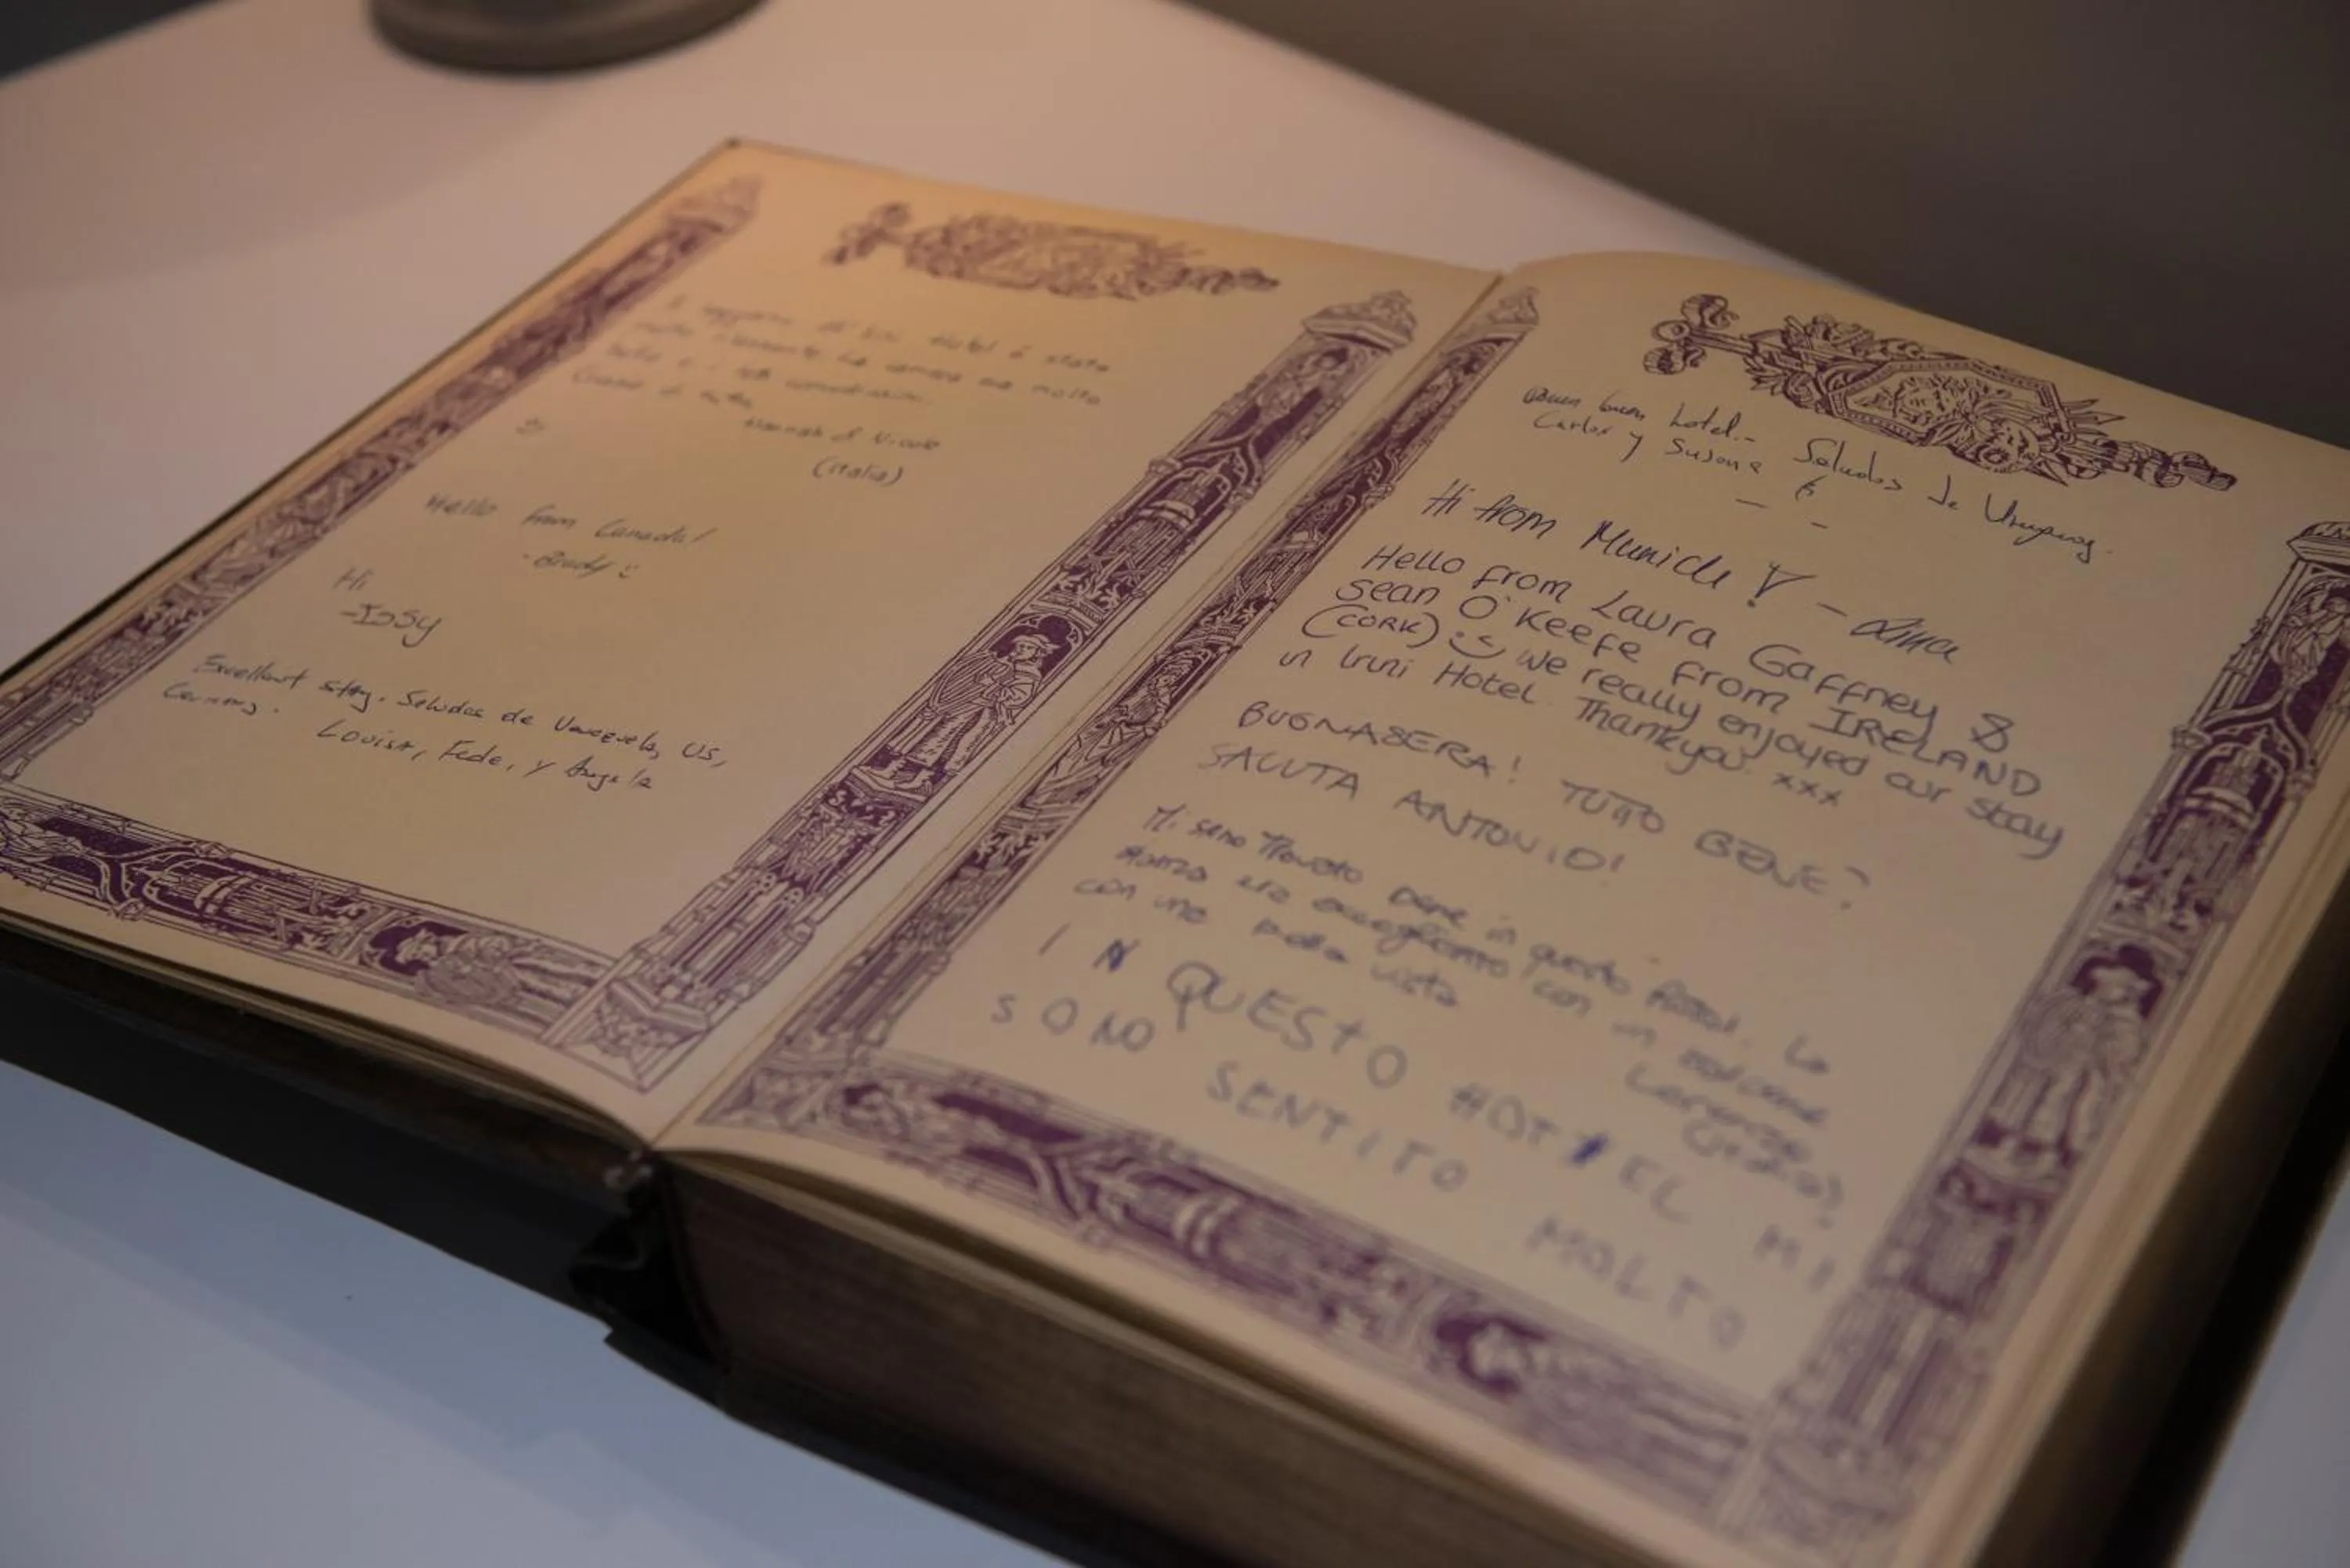 Il soggiorno all'Iruni Hotel è stato
molto la camera era molto
bella e
Nicole
(Italia)
Hello from Canada!
- Brady :)
Hi
-Issy
Excellent stay. Saludos de Venezuela, US,
Germany.
Louisa, Fede, y Angela
buen hotel.- Saludos de Uruguay.
Carlos y Susana
Hi from Munich! - Lina
Hello from Laura Gaffney &
Sean O'Keefe from IRELAND
(CORK) :) We really enjoyed our stay
in Iruni Hotel. Thankyou xxx
BUONASERA! TUTTO BENE?
SALUTA ANTONIO!
Mi sono trovato bene in questo hotel. La
stanza era accogliente con un balcone
con una bella vista
Lorenzo
IN QUESTO HOTEL MI
SONO SENTITO MOLTO